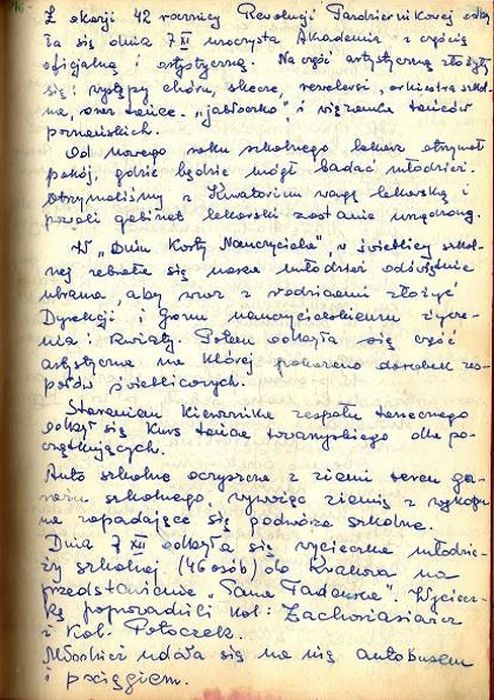 Z okazji 42 rocznicy Rewolucji Październikowej odby
ła się dnia 7 XI uroczysta Akademia z częścią
oficjalną i artystyczną. Na część artystyczną złożyły
się: występy chóru, skecze, rewelersi, orkiestra szkol-
na, oraz tańce „jabłoczko" i wiązanka tańców
poznańskich.
Od nowego roku szkolnego lekarz otrzymał
pokój, gdzie będzie mógł badać młodzież.
Otrzymaliśmy z Kuratorium wagę lekarską i
powoli gabinet lekarski zostanie urządzony.
W „Dniu Karty Nauczyciela", w świetlicy szkol-
nej zebrała się nasza młodzież odświętnie
ubrana, aby wraz z rodzicami złożyć
Dyrekcji i Gronu nauczycielskiemu życze-
nia i kwiaty. Potem odbyła się część
artystyczna na której pokazano dorobek zes-
połów świetlicowych.
Staraniem Kierownika zespołu tanecznego
odbył się Kurs tańca towarzyskiego dla po-
czątkujących.
Auto szkolne oczyszcza z ziemi teren ga-
rażu szkolnego, wywożąc ziemię z wykopu
na zapadające się podwórze szkolne.
Dnia 7 XII odbyła się wycieczka młodzie-
ży szkolnej (46 osób) do Krakowa na
przedstawienie „Pana Tadeusza". Wyciecz-
kę poprowadzili kol: Zachariasiewicz
i kol. Potoczek.
Młodzież udała się na nią autobusem
i pociągiem.